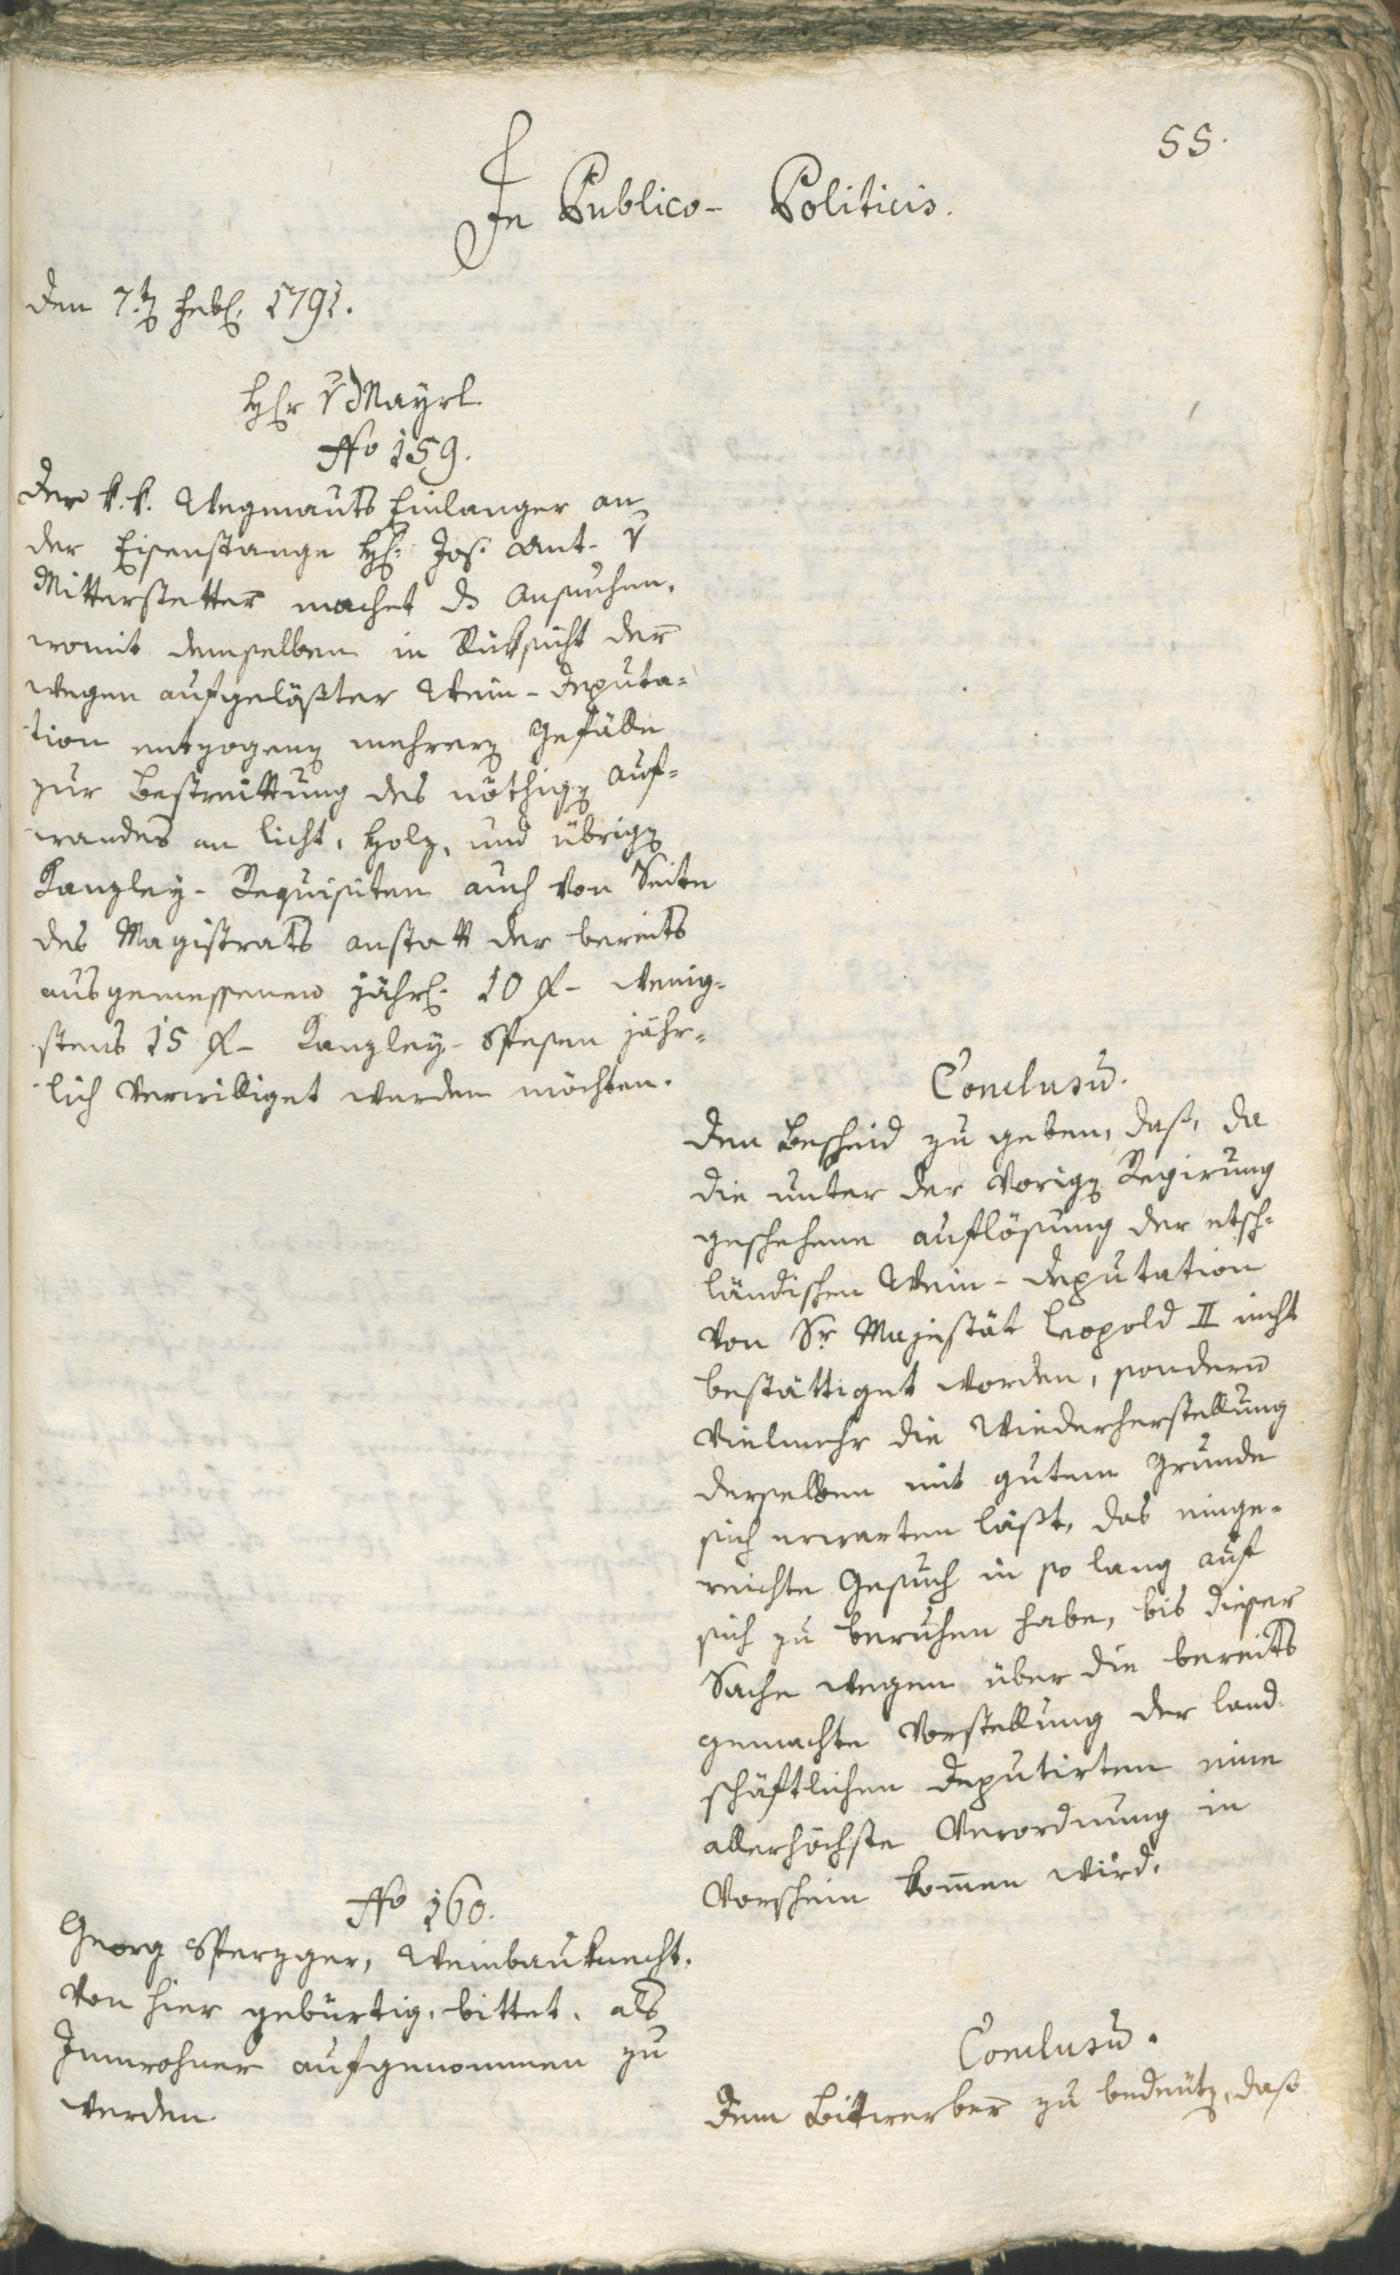 55.
In Publico- Politicis.
den 7.t[en] Feb[r]. 1791.
H[er]r v Mayrl
No 159.
Der k. k. Wegmauts Einlanger an
der Eisenstange H[r]: Jos: Ant. v
Mitterstetter machet ds Ansuchen,
womit demselben in Rüksicht der
wegen aufgelößter Wein-Deputa=
tion entzogen[en] mehrer[en] Gefälle
zur Bestreittung des nöthig[en] Auf=
wandes an Licht, Holz, und übrig[en]
Kanzley-Requisiten auch von Seite
des Magistrats anstatt der bereits
ausgemessenen jährl. 10 f- wenig=
stens 15 f- Kanzley-Spesen jähr=
lich verwilliget werden möchten.
Conclusū.
Den Bescheid zu geben, daß, da
die unter der vorig[en] Regirung
geschehene Auflösung der etsch=
ländischen Wein-Deputation
von Sr Majestät Leopold II nicht
bestättiget worden, sondern
vielmehr die Wiederherstellung
derselben mit gutem Grunde
sich erwarten läßt, das einge=
reichte Gesuch in so lang auf
sich zu beruhen habe, bis dieser
Sache wegen über die bereits
gemachte Vorstellung der land=
schäftlichen Deputirten eine
allerhöchste Verordnung in
Vorschein kom̄en wird.
No 160.
Georg Sperzger, Weinbauknecht,
von hier gebürtig, bittet, als
Innwohner aufgenommen zu
werden
Conclusū.
Dem Bittwerber zu bedeut[en], daß